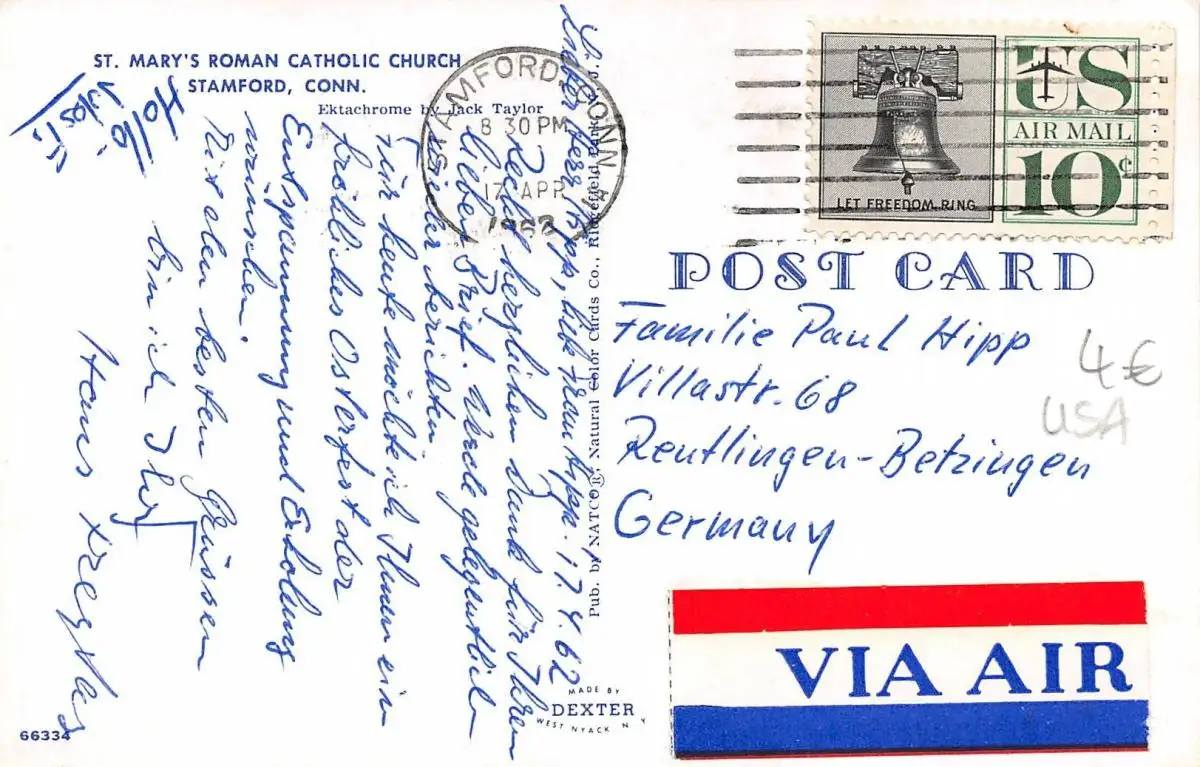 ST. MARY'S ROMAN CATHOLIC CHURCH
STAMFORD, CONN.
Ektachrome by Jack Taylor
Lieber Herr Hipp, liebe Frau Hipp. 17.4.62
Recht herzlichen Dank für Ihren
lieben Brief. Werde gelegentlich
wieder berichten.
Für heute möchte ich Ihnen ein
fröhliches Osterfest der
Entspannung und Erholung
wünschen.
Mit den besten Grüssen
bin ich Ihr
Hans
Pub. by NATCO®, Natural Color Cards Co., Ridgefield Park, N. J.
STAMFORD, CONN
8 30 PM
17 APR
1962
LET FREEDOM RING
US
AIR MAIL
10¢
POST CARD
Familie Paul Hipp
Villastr. 68
Reutlingen-Betzingen
Germany
4 €
USA
VIA AIR
MADE BY
DEXTER
WEST NYACK N Y
66334